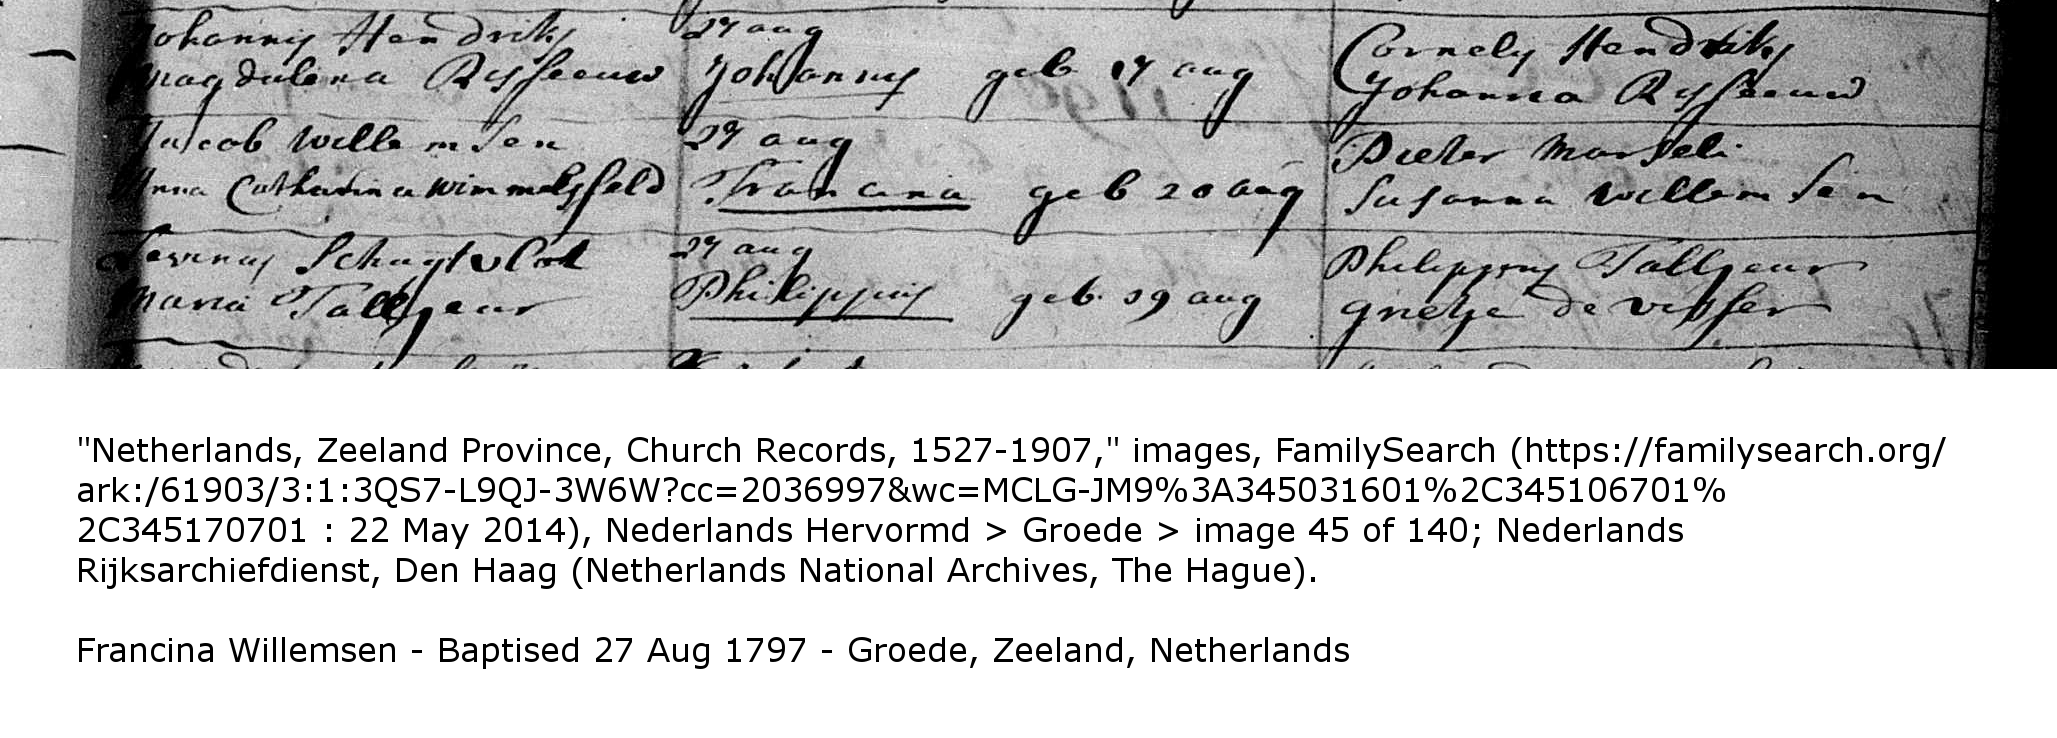 Johannis Hendriks 27 aug Cornelis Hendriks
Magdalena Risseeuw Johannis geb 17 aug Johanna Risseeuw
Jacob Willemsen 27 aug Pieter Marseli
Anna Catharina Wimmelsfeld Francina geb 20 aug Susanna Willemsen
27 aug Philippus Tallyeur
Maria Tallyeur Philippus geb 19 aug grietje de Visser
"Netherlands, Zeeland Province, Church Records, 1527-1907," images, FamilySearch (https://familysearch.org/
ark:/61903/3:1:3QS7-L9QJ-3W6W?cc=2036997&wc=MCLG-JM9%3A345031601%2C345106701%
2C345170701 : 22 May 2014), Nederlands Hervormd > Groede > image 45 of 140; Nederlands
Rijksarchiefdienst, Den Haag (Netherlands National Archives, The Hague).
Francina Willemsen - Baptised 27 Aug 1797 - Groede, Zeeland, Netherlands